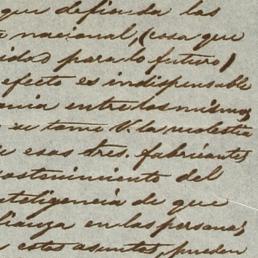 que defienda las
nacional, (cosa que
idad para lo futuro)
efecto es indispensable
entre los mismos
se tome V. la molestia
esos dres. fabricantes
sostenimiento del
inteligencia de que
fianza en las personas
estos asuntos, pueden